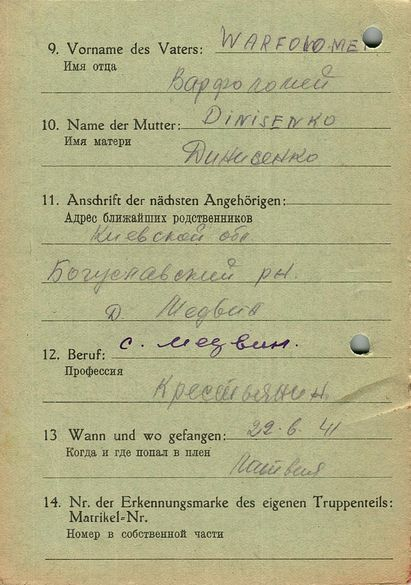 9. Vorname des Vaters: WARFOLOMEI
Имя отца
Варфоломей
10. Name der Mutter: DINISENKO
Имя матери
Динисенко
11. Anschrift der nächsten Angehörigen:
Адрес ближайших родственников
Киевской обл.
Богуславский рн.
д. Медвин
с. Медвин.
12. Beruf:
Профессия
Крестьянин
13 Wann und wo gefangen: 22.6.41
Когда и где попал в плен
Латвия
14. Nr. der Erkennungsmarke des eigenen Truppenteils:
Matrikel=Nr.
Номер в собственной части